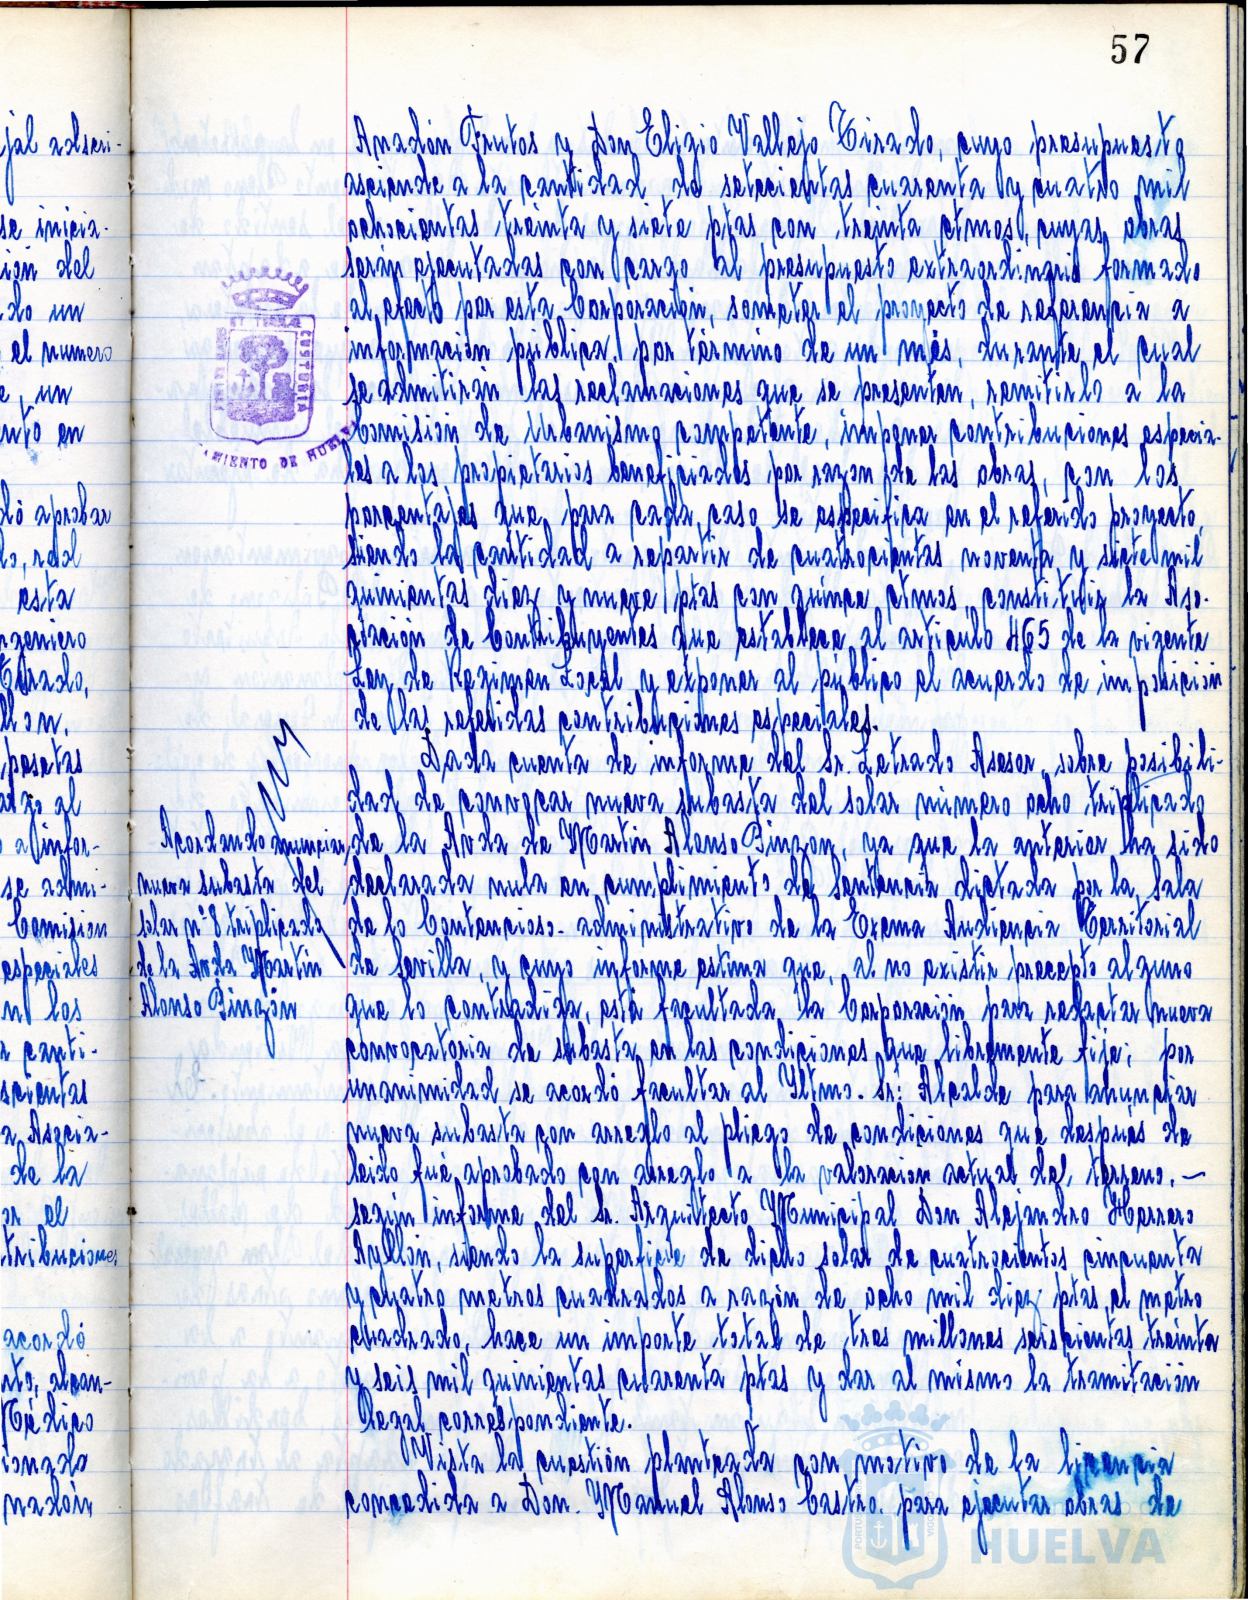 57
jal adscri-
se inicia-
ión del
do un
el numero
e, un
nto en
dó aprobar
do, red
esta
ngeniero
Tirado,
llon,
pesetas
argo al
a infor-
se admi-
Comision
especiales
n los
a canti-
scientas
a Asocia-
de la
or el
tribuciones
acordó
nto, alcan-
Médico
ionada
nadón,
Anadón Frutos y Don Eligio Vallejo Tirado, cuyo presupuesto
asciende a la cantidad de setecientas cuarenta y cuatro mil
ochocientas treinta y siete ptas con treinta ctmos, cuyas obras
serán ejecutadas con cargo al presupuesto extraordinario formado
al efecto por esta Corporación, someter el proyecto de referencia a
información pública por término de un més, durante el cual
se admitirán las reclamaciones que se presenten, remitirlo a la
Comisión de Urbanismo competente, imponer contribuciones especia-
les a los propietarios beneficiados por razon de las obras, con los
porcentajes que para cada caso se especifica en el referido proyecto,
siendo la cantidad a repartir de cuatrocientas noventa y siete mil
quinientas diez y nueve ptas con quince ctmos, constituir la Aso-
ciación de Contribuyentes que establece el articulo 465 de la vigente
Ley de Regimen Local y exponer al público el acuerdo de imposición
de las referidas contribuciones especiales.
Dada cuenta de informe del Sr. Letrado Asesor, sobre posibili-
dad de convocar nueva subasta del solar número ocho triplicado
de la Avda de Martin Alonso Pinzon, ya que la anterior ha sido
declarada nula en cumplimiento de Sentencia dictada por la Sala
de lo Contencioso-administrativo de la Excma Audiencia Territorial
de Sevilla, y cuyo informe estima que, al no existir precepto alguno
que lo contradiga, está facultada la Corporación para redactar nueva
convocatoria de subasta en las condiciones que libremente fije; por
unanimidad se acordó facultar al Yltmo. Sr. Alcalde para anunciar
nueva subasta con arreglo al pliego de condiciones que después de
leido fué aprobado con arreglo a la valoración actual del terreno, —
según informe del Sr. Arquitecto Municipal Don Alejandro Herrero
Ayllón, siendo la superficie de dicho solar de cuatrocientos cincuenta
y cuatro metros cuadrados a razón de ocho mil diez ptas el metro
cuadrado, hace un importe total de tres millones seiscientas treinta
y seis mil quinientas cuarenta ptas y dar al mismo la tramitación
legal correspondiente.
Vista la cuestión planteada con motivo de la licencia
concedida a Don Manuel Alonso Castro para ejecutar obras de
Acordando anunciar
nueva subasta del
solar nº 8 triplicado
de la Avda Martin
Alonso Pinzón
MIENTO DE HUEL
HUELVA